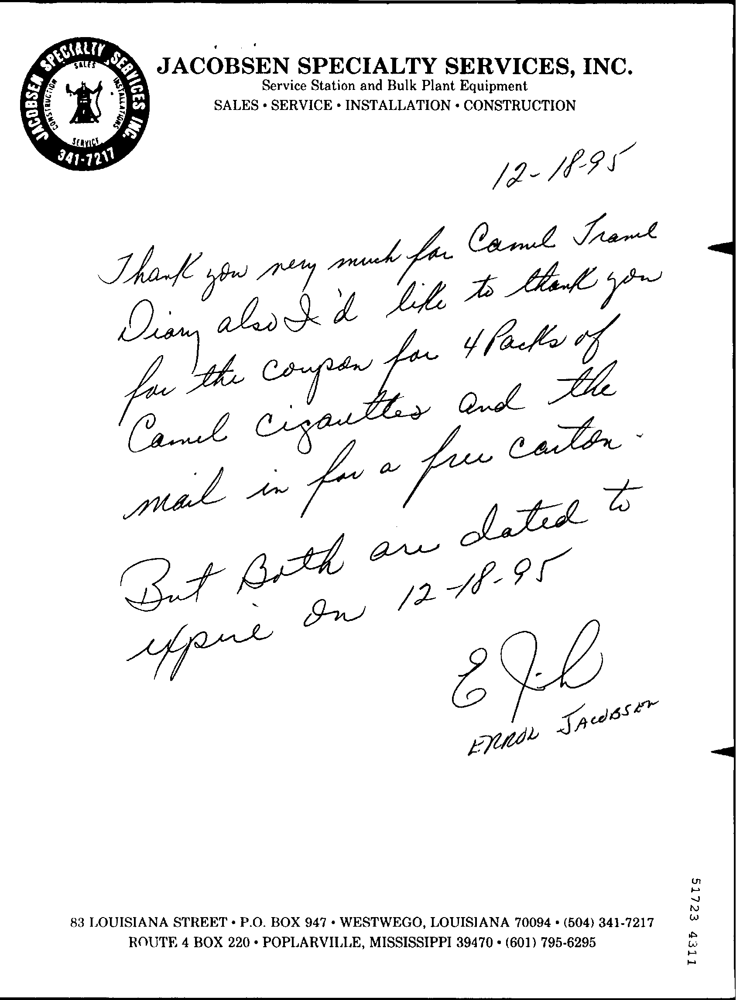 JACOBSEN SPECIALTY SERVICES INC.
SALES
INSTALLATIONS
CONSTRUCTION
SERVICE
341-7217
JACOBSEN SPECIALTY SERVICES, INC.
Service Station and Bulk Plant Equipment
SALES • SERVICE • INSTALLATION • CONSTRUCTION
12-18-95
Thank you very much for Camel Travel
Diary also I'd like to thank you
for the coupon for 4 Packs of
Camel Cigarettes and the
mail in for a free carton.
But Both are dated to
expire on 12-18-95
ERROL JACOBSEN
83 LOUISIANA STREET • P.O. BOX 947 • WESTWEGO, LOUISIANA 70094 • (504) 341-7217
ROUTE 4 BOX 220 • POPLARVILLE, MISSISSIPPI 39470 • (601) 795-6295
51723 4311